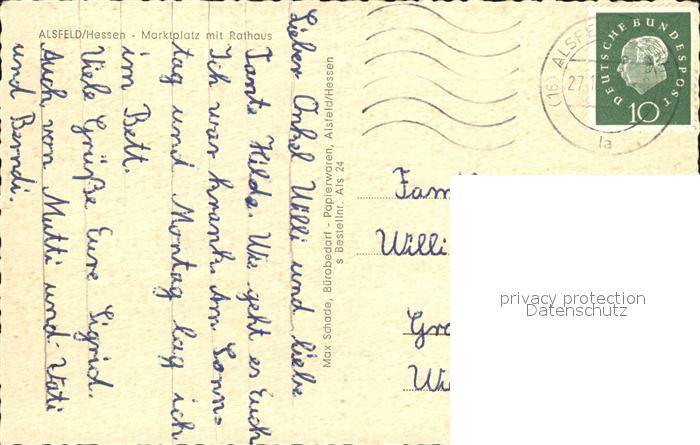 ALSFELD/Hessen - Marktplatz mit Rathaus
Lieber Onkel Willi und liebe
Tante Hilde. Wie geht es Euch
Ich war krank. Am Sonn=
tag und Montag lag ich
im Bett.
Viele Grüße Eure Sigrid.
Auch, von Mutti und Vati
und Berndi.
Max Schade, Bürobedarf - Papierwaren, Alsfeld/Hessen
s Bestellnr. Als 24
(16) ALSFE
27.1
la
DEUTSCHE BUNDESPOST
10
Fam
Willi
Gro
Wi
privacy protection
Datenschutz